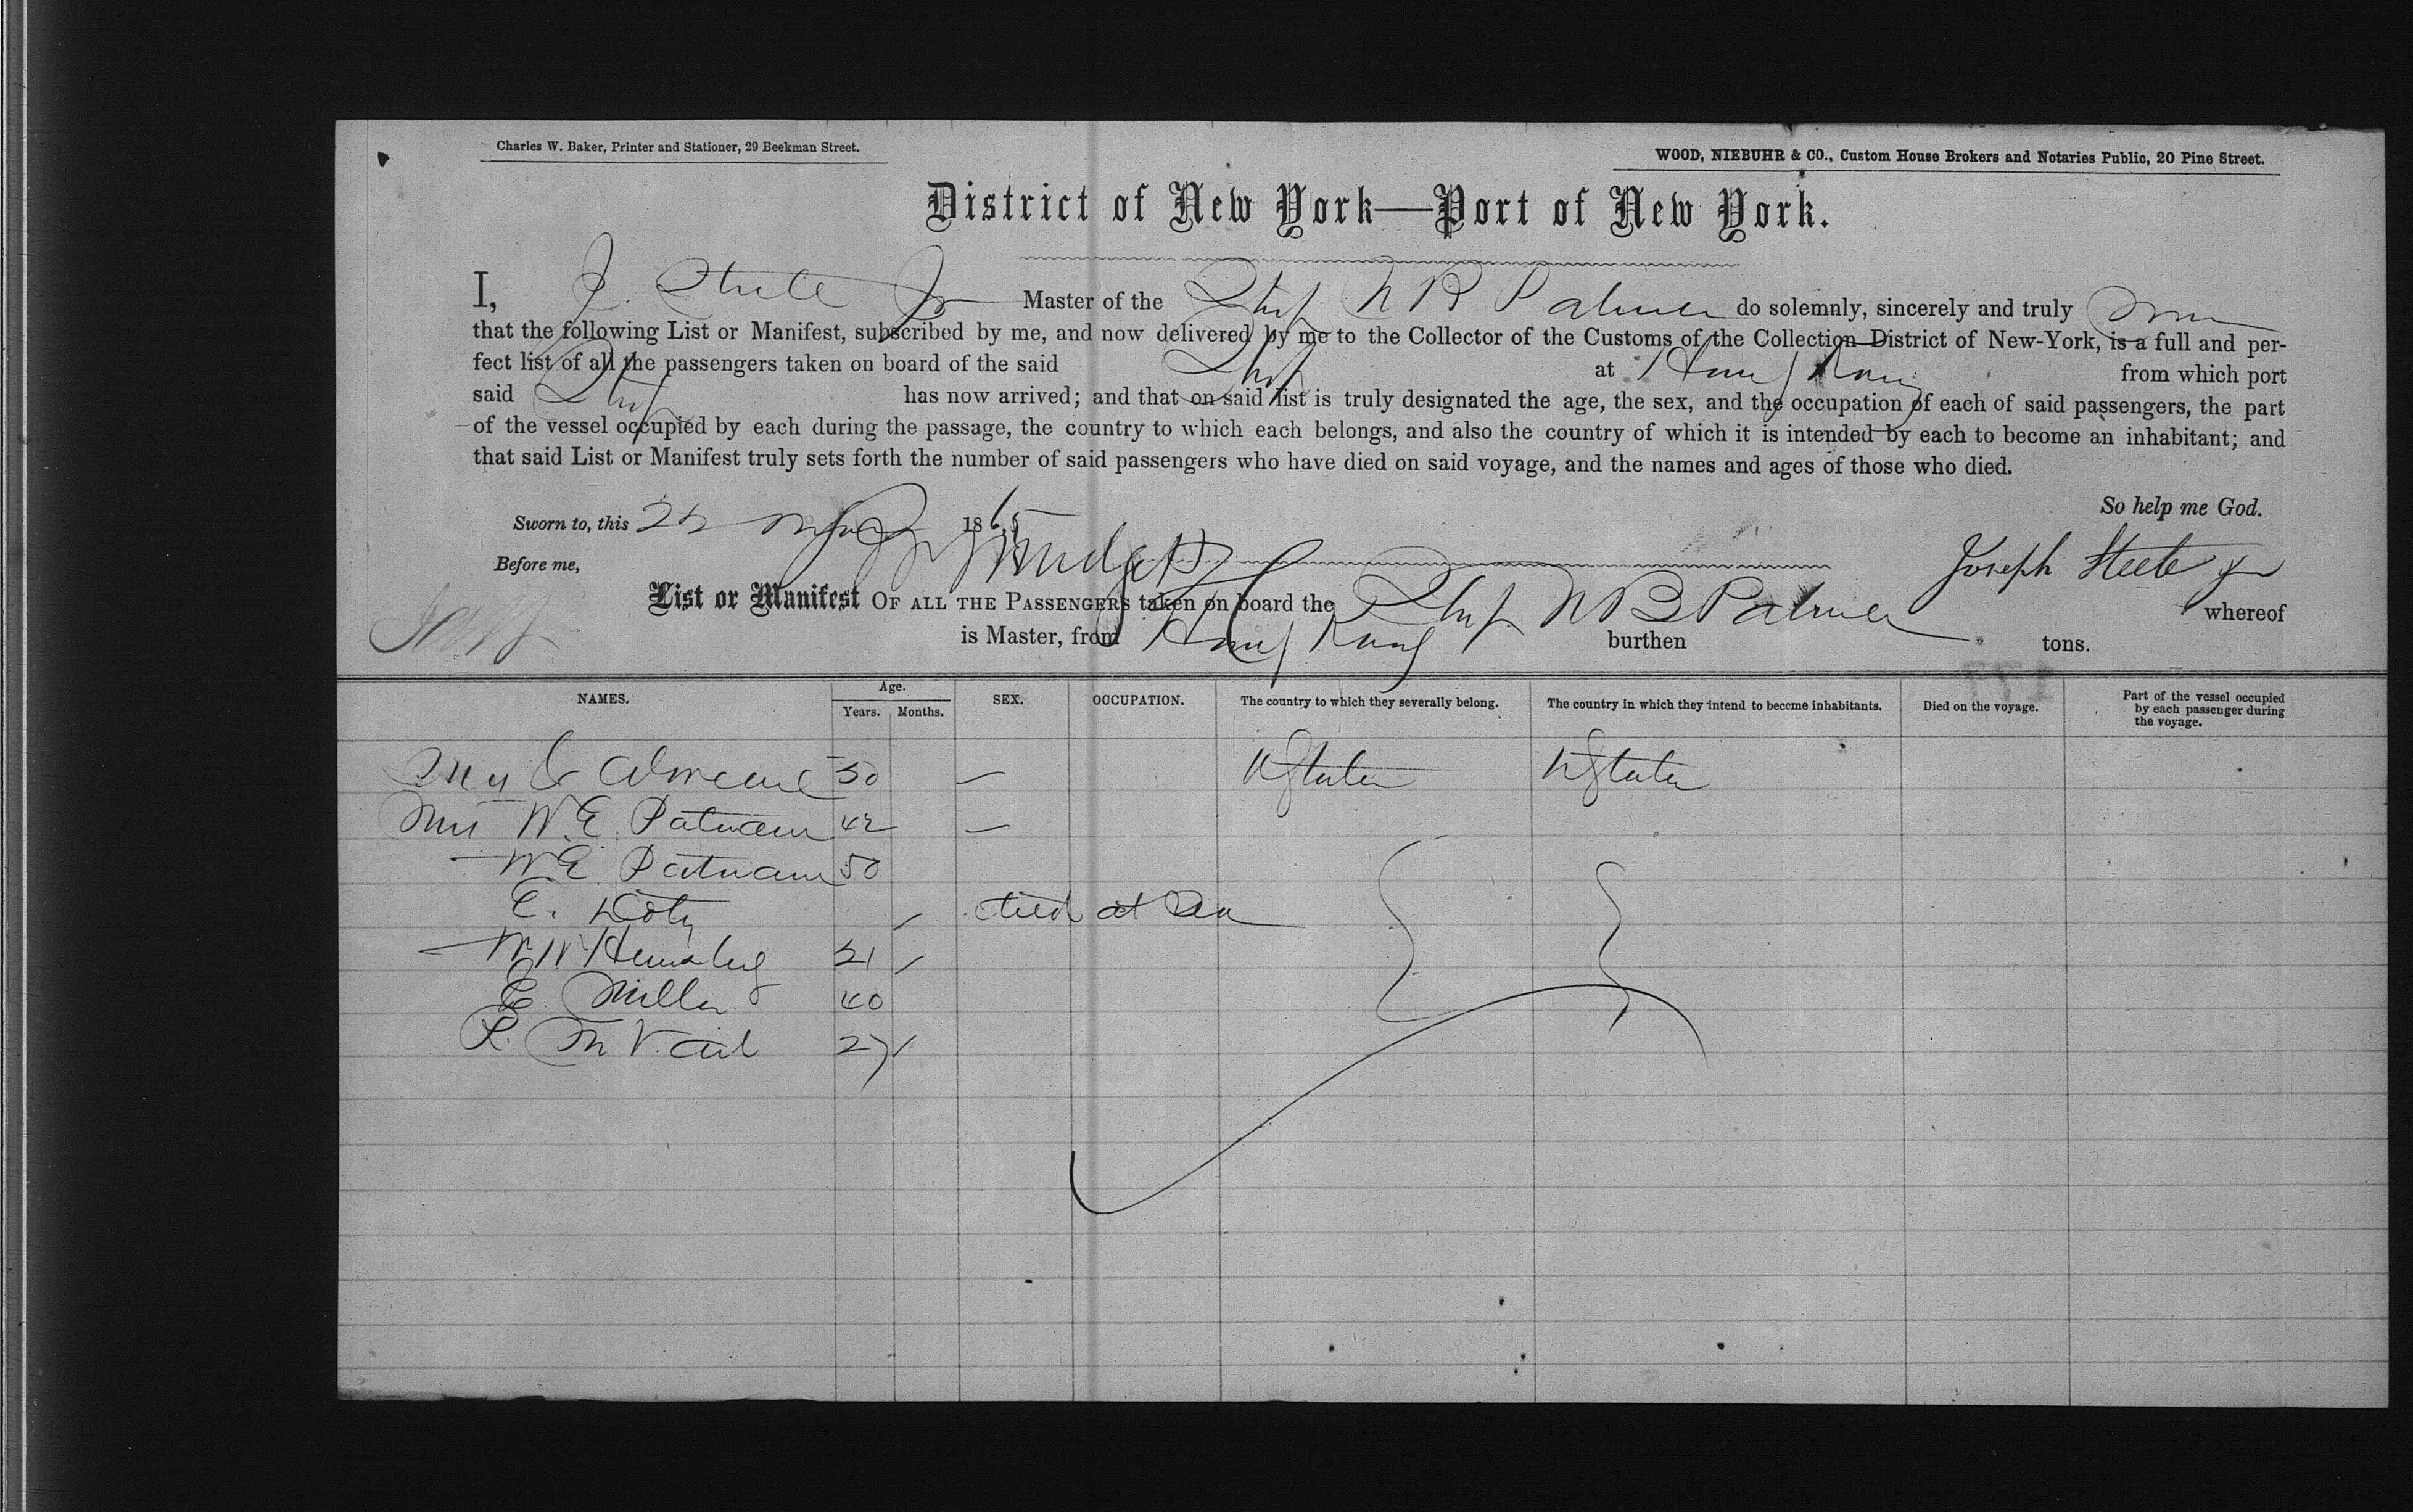 Charles W. Baker, Printer and Stationer, 29 Beekman Street.
WOOD, NIEBUHR & CO., Custom House Brokers and Notaries Public, 20 Pine Street.
District of New York—Port of New York.
I, J. Steele Jr Master of the Ship N B Palmer do solemnly, sincerely and truly
that the following List or Manifest, subscribed by me, and now delivered by me to the Collector of the Customs of the Collection District of New-York, is a full and per-
fect list of all the passengers taken on board of the said Ship at Hong Kong from which port
said Ship has now arrived; and that on said list is truly designated the age, the sex, and the occupation of each of said passengers, the part
of the vessel occupied by each during the passage, the country to which each belongs, and also the country of which it is intended by each to become an inhabitant; and
that said List or Manifest truly sets forth the number of said passengers who have died on said voyage, and the names and ages of those who died.
So help me God.
Sworn to, this 1865
Before me, Joseph Steele Jr
List or Manifest OF ALL THE PASSENGERS taken on board the Ship N B Palmer whereof
is Master, from Hong Kong burthen tons.
NAMES. Age. Years. Months. SEX. OCCUPATION. The country to which they severally belong. The country in which they intend to become inhabitants. Died on the voyage. Part of the vessel occupied by each passenger during the voyage.
50 — U States U States
Mrs W. E. Putnam 42 —
W E Putnam 50
E. Doty died at Sea
W W
E. Miller 40
R. M Vail 27